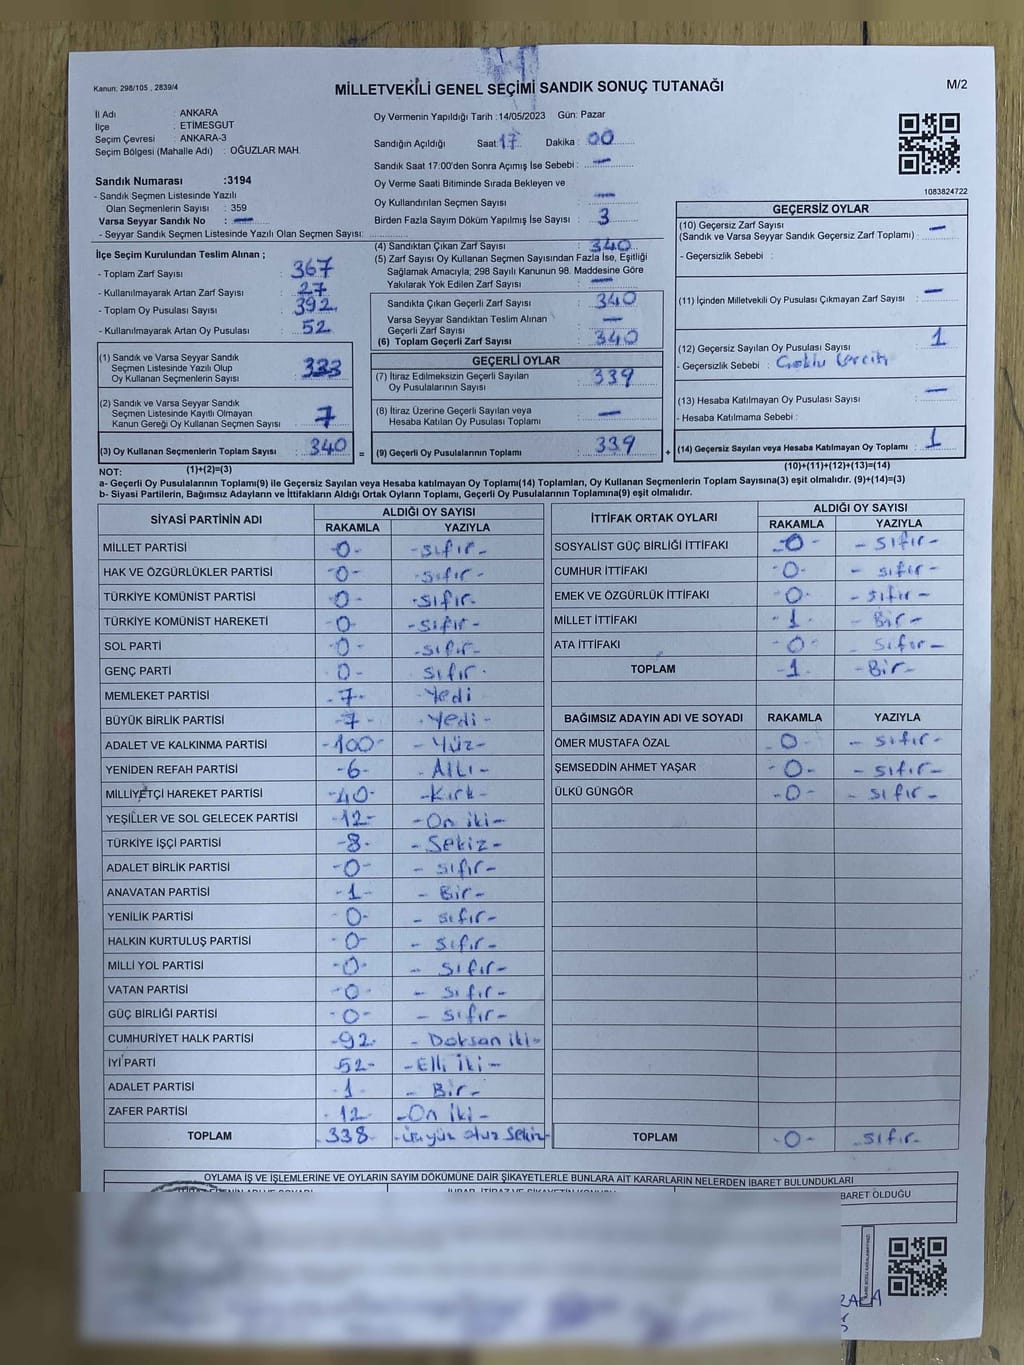 Kanun: 298/105 , 2839/4
MİLLETVEKİLİ GENEL SEÇİMİ SANDIK SONUÇ TUTANAĞI
M/2
İl Adı : ANKARA
İlçe : ETİMESGUT
Seçim Çevresi : ANKARA-3
Seçim Bölgesi (Mahalle Adı) : OĞUZLAR MAH.
Sandık Numarası :3194
- Sandık Seçmen Listesinde Yazılı
Olan Seçmenlerin Sayısı : 359
Varsa Seyyar Sandık No : -
- Seyyar Sandık Seçmen Listesinde Yazılı Olan Seçmen Sayısı:
Oy Vermenin Yapıldığı Tarih :14/05/2023 Gün: Pazar
Sandığın Açıldığı Saat: 17 Dakika : 00
Sandık Saat 17:00'den Sonra Açımış İse Sebebi : -
Oy Verme Saati Bitiminde Sırada Bekleyen ve
Oy Kullandırılan Seçmen Sayısı : -
Birden Fazla Sayım Döküm Yapılmış İse Sayısı : 3
1083824722
İlçe Seçim Kurulundan Teslim Alınan ;
- Toplam Zarf Sayısı : 367
- Kullanılmayarak Artan Zarf Sayısı : 27
- Toplam Oy Pusulası Sayısı : 392
- Kullanılmayarak Artan Oy Pusulası : 52
(1) Sandık ve Varsa Seyyar Sandık
Seçmen Listesinde Yazılı Olup
Oy Kullanan Seçmenlerin Sayısı : 333
(2) Sandık ve Varsa Seyyar Sandık
Seçmen Listesinde Kayıtlı Olmayan
Kanun Gereği Oy Kullanan Seçmen Sayısı : 7
(3) Oy Kullanan Seçmenlerin Toplam Sayısı : 340
(1)+(2)=(3)
(4) Sandıktan Çıkan Zarf Sayısı : 340
(5) Zarf Sayısı Oy Kullanan Seçmen Sayısından Fazla İse, Eşitliği
Sağlamak Amacıyla; 298 Sayılı Kanunun 98. Maddesine Göre
Yakılarak Yok Edilen Zarf Sayısı : -
Sandıkta Çıkan Geçerli Zarf Sayısı : 340
Varsa Seyyar Sandıktan Teslim Alınan
Geçerli Zarf Sayısı : -
(6) Toplam Geçerli Zarf Sayısı : 340
GEÇERLİ OYLAR
(7) İtiraz Edilmeksizin Geçerli Sayılan
Oy Pusulalarının Sayısı : 339
(8) İtiraz Üzerine Geçerli Sayılan veya
Hesaba Katılan Oy Pusulası Toplamı : -
= (9) Geçerli Oy Pusulalarının Toplamı : 339
GEÇERSİZ OYLAR
(10) Geçersiz Zarf Sayısı
(Sandık ve Varsa Seyyar Sandık Geçersiz Zarf Toplamı) : -
- Geçersizlik Sebebi :
(11) İçinden Milletvekili Oy Pusulası Çıkmayan Zarf Sayısı : -
(12) Geçersiz Sayılan Oy Pusulası Sayısı : 1
- Geçersizlik Sebebi : Çoklu tercih
(13) Hesaba Katılmayan Oy Pusulası Sayısı : -
- Hesaba Katılmama Sebebi :
+ (14) Geçersiz Sayılan veya Hesaba Katılmayan Oy Toplamı : 1
(10)+(11)+(12)+(13)=(14)
NOT:
a- Geçerli Oy Pusulalarının Toplamı(9) ile Geçersiz Sayılan veya Hesaba katılmayan Oy Toplamı(14) Toplamları, Oy Kullanan Seçmenlerin Toplam Sayısına(3) eşit olmalıdır. (9)+(14)=(3)
b- Siyasi Partilerin, Bağımsız Adayların ve İttifakların Aldığı Ortak Oyların Toplamı, Geçerli Oy Pusulalarının Toplamına(9) eşit olmalıdır.
SİYASİ PARTİNİN ADI ALDIĞI OY SAYISI
RAKAMLA YAZIYLA
MİLLET PARTİSİ -0- -sıfır-
HAK VE ÖZGÜRLÜKLER PARTİSİ -0- -sıfır-
TÜRKİYE KOMÜNİST PARTİSİ -0- -sıfır-
TÜRKİYE KOMÜNİST HAREKETİ -0- -sıfır-
SOL PARTİ -0- -sıfır-
GENÇ PARTİ 0- sıfır-
MEMLEKET PARTİSİ -7- -Yedi
BÜYÜK BİRLİK PARTİSİ -7- -Yedi-
ADALET VE KALKINMA PARTİSİ -100- -Yüz-
YENİDEN REFAH PARTİSİ -6- -Altı-
MİLLİYETÇİ HAREKET PARTİSİ -40- -Kırk-
YEŞİLLER VE SOL GELECEK PARTİSİ -12- -On iki-
TÜRKİYE İŞÇİ PARTİSİ -8- -Sekiz-
ADALET BİRLİK PARTİSİ -0- -sıfır-
ANAVATAN PARTİSİ -1- -Bir-
YENİLİK PARTİSİ -0- -sıfır-
HALKIN KURTULUŞ PARTİSİ -0- -sıfır-
MİLLİ YOL PARTİSİ -0- -sıfır-
VATAN PARTİSİ -0- -sıfır-
GÜÇ BİRLİĞİ PARTİSİ -0- -sıfır-
CUMHURİYET HALK PARTİSİ -92- -Doksan iki-
İYİ PARTİ -52- -Elli iki-
ADALET PARTİSİ -1- -Bir-
ZAFER PARTİSİ -12- -On iki-
TOPLAM -338- -üçyüz otuz sekiz-
İTTİFAK ORTAK OYLARI ALDIĞI OY SAYISI
RAKAMLA YAZIYLA
SOSYALİST GÜÇ BİRLİĞİ İTTİFAKI -0- -sıfır-
CUMHUR İTTİFAKI -0- -sıfır-
EMEK VE ÖZGÜRLÜK İTTİFAKI -0- -sıfır-
MİLLET İTTİFAKI -1- -Bir-
ATA İTTİFAKI -0- -sıfır-
TOPLAM -1- -Bir-
BAĞIMSIZ ADAYIN ADI VE SOYADI RAKAMLA YAZIYLA
ÖMER MUSTAFA ÖZAL 0- -sıfır-
ŞEMSEDDİN AHMET YAŞAR -0- -sıfır-
ÜLKÜ GÜNGÖR -0- -sıfır-
TOPLAM -0- -sıfır-
OYLAMA İŞ VE İŞLEMLERİNE VE OYLARIN SAYIM DÖKÜMÜNE DAİR ŞİKAYETLERLE BUNLARA AİT KARARLARIN NELERDEN İBARET BULUNDUKLARI
BARET OLDUĞU